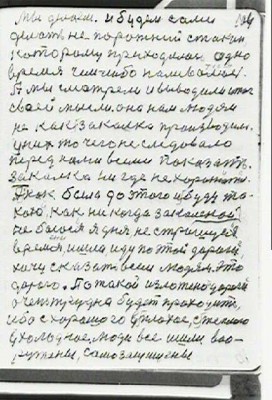 Мы делаем. и будем сами
делать не порожний стакан
которому приходилось одно
время чем либо наливаться.
А мы смотрели и выводили из
своей мысли. она нам людям
не как закалка производил.
у них то чего не следовало
перед нами всеми показать.
закалка ни где не хоронит.
Как была до этого и будет та-
кою, как никогда закалкой
не боися я дня не страшуся
время, ишел иду по этой дороге,
хочу сказать всем людям. Это
дорого. По такой изложено дороге
очень трудно будет проходить,
ибо с хорошого у плохое, с теплого
у холодное, люди все шли воо-
ружены, самозащищены